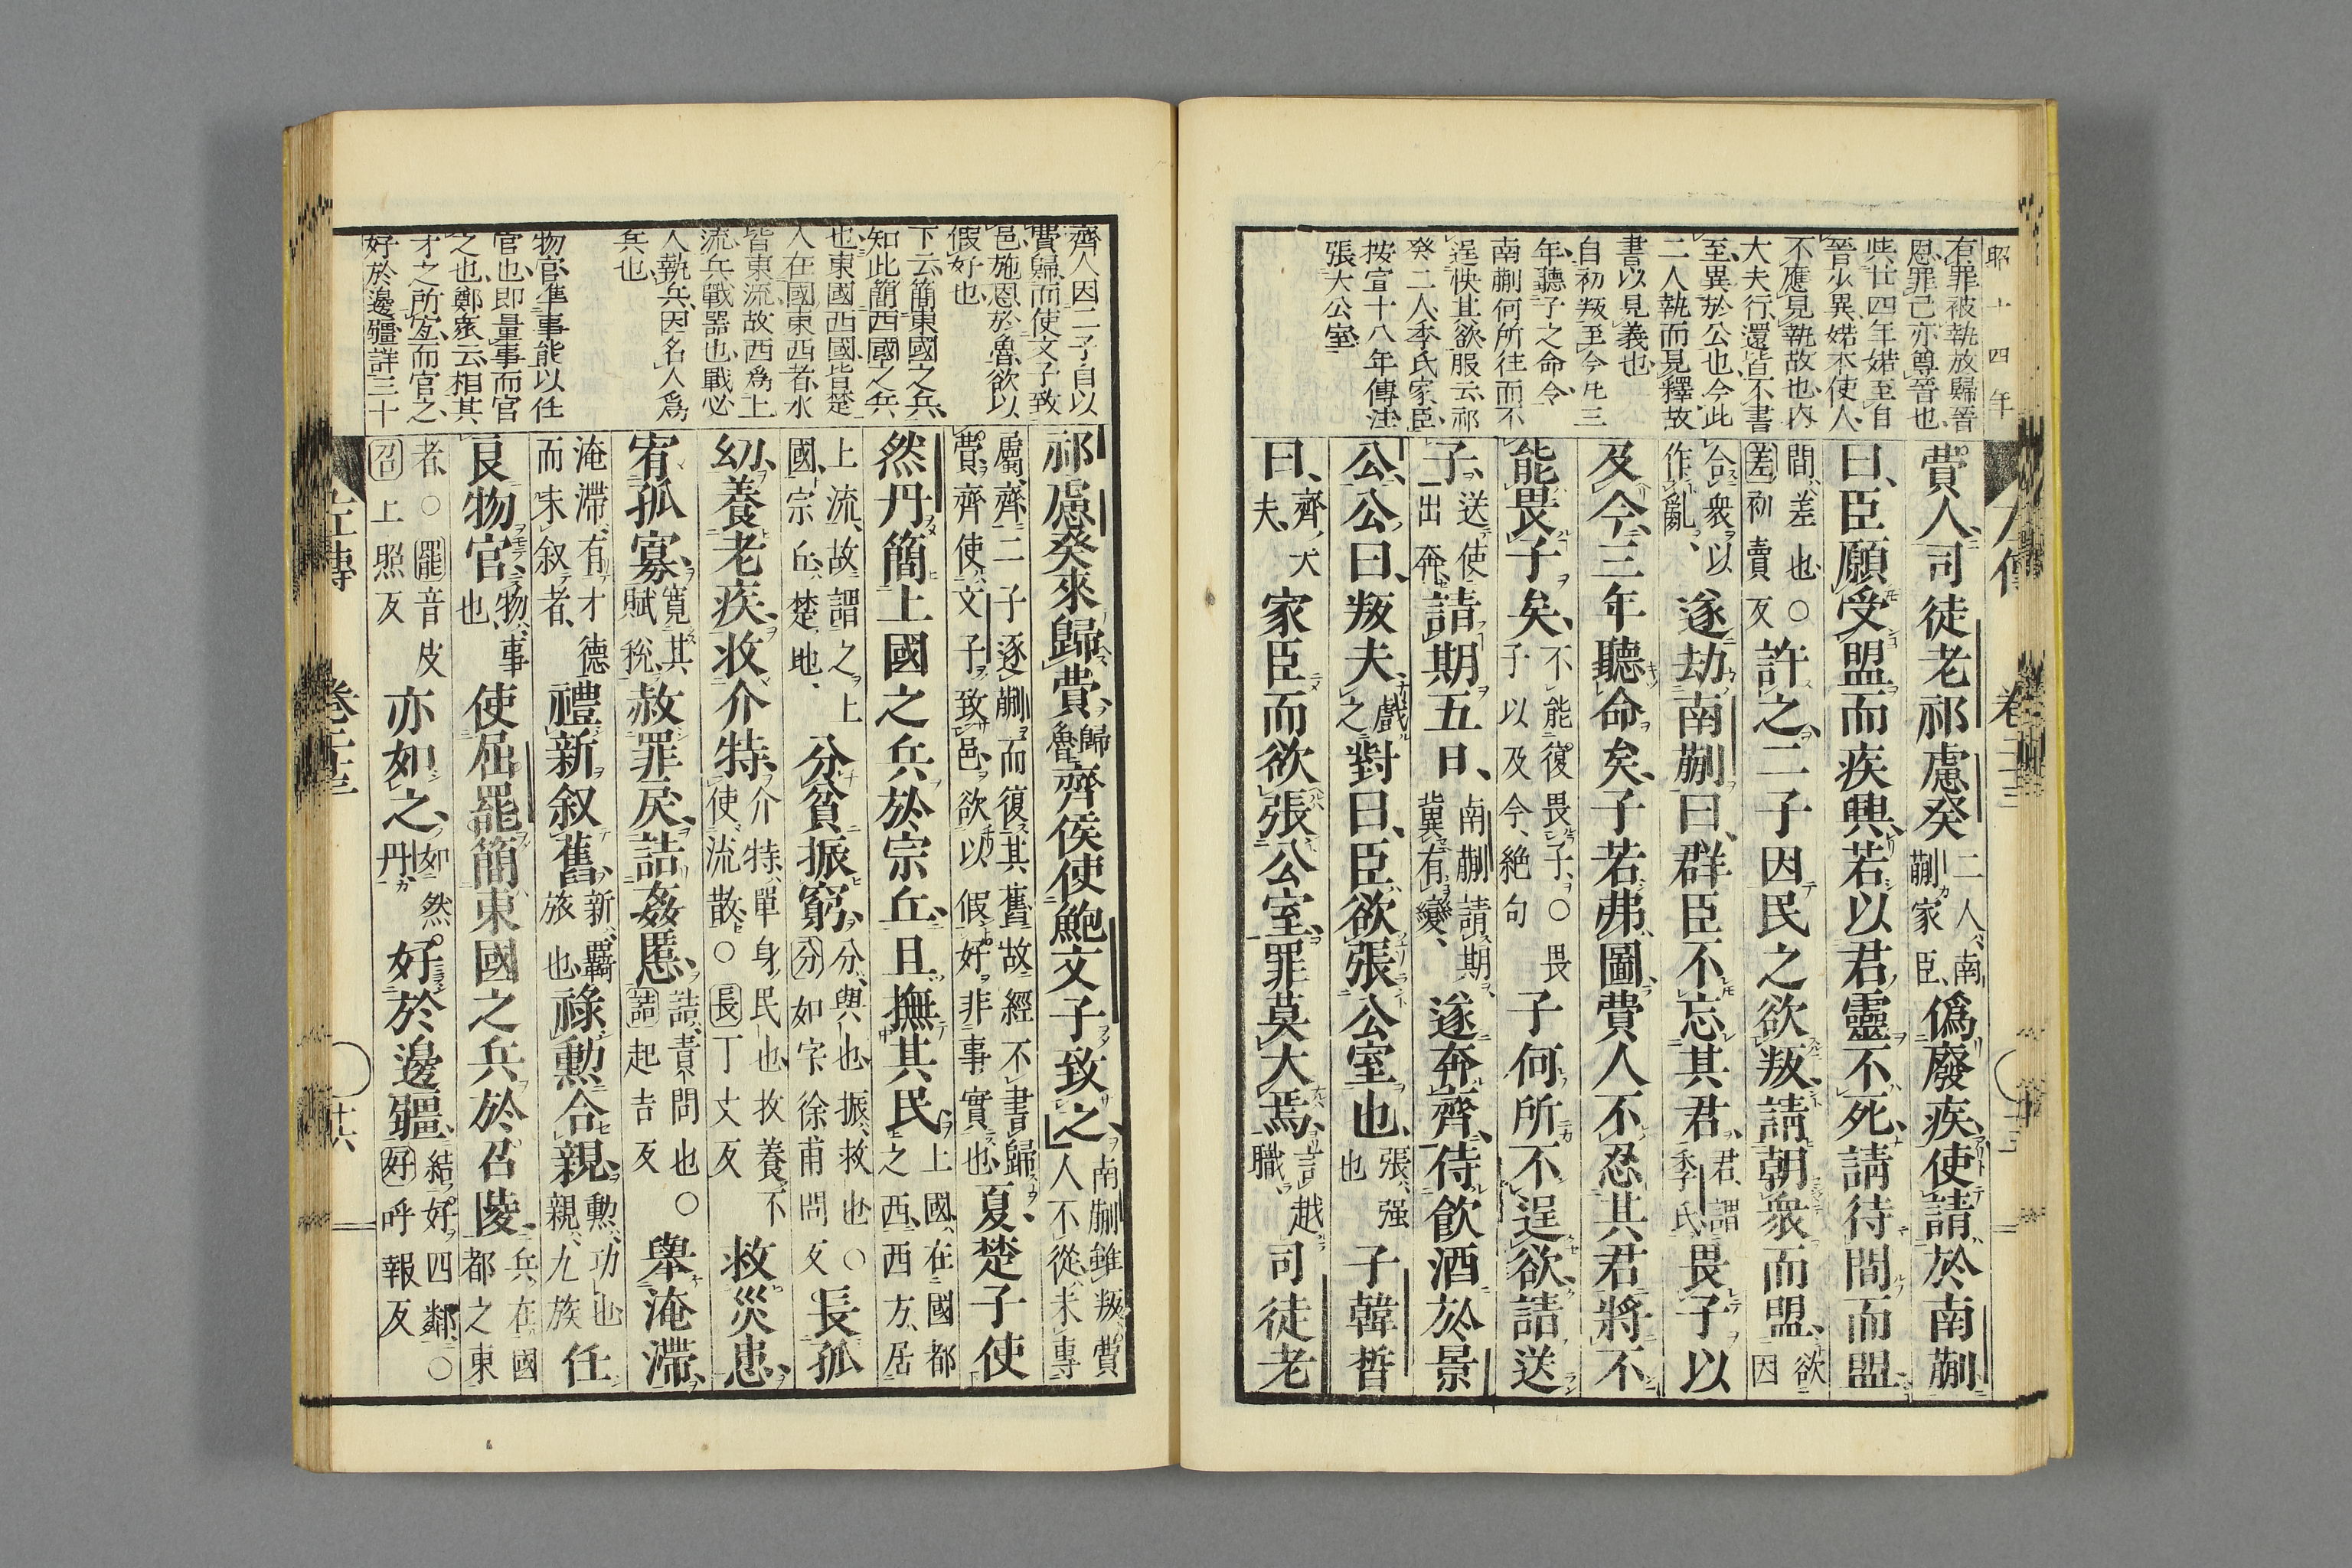 昭十四年
有罪被執放歸晉
恩罪己亦尊晉也
與廿四年婼至自
晉少異婼本使人
不應見執故也内
大夫行還皆不書
至異於公也今此
二人執而見釋故
書以見義也
自初叛至今凡三
年聽子之命令
南蒯何所往而不
逞快其欲服云祁
癸二人季氏家臣
按宣十八年傳注
張大公室
費人司徒老祁慮癸二人南蒯家臣偽廢疾使請於南蒯
曰臣願受盟而疾興若以君靈不死請待間而盟
間差也○差初賣反許之二子因民之欲叛請朝衆而盟欲因
合衆以作亂遂劫南蒯曰群臣不忘其君君謂季氏畏子以
及今三年聽命矣子若弗圖費人不忍其君將不
能畏子矣不能復畏子○畏子以及今絶句子何所不逞欲請送
子送使出奔請期五日南蒯請期冀有變遂奔齊侍飲酒於景
公公曰叛夫戲之對曰臣欲張公室也張強也子韓皙
曰齊大夫家臣而欲張公室罪莫大焉言越職司徒老
齊人因二子自以
費歸而使文子致
邑施恩於魯欲以
假好也
下云簡東國之兵
知此簡西國之兵
也東國西國皆楚
人在國東西者水
皆東流故西爲上
流兵戰器也戰必
人執兵因名人爲
兵也
物官準事能以任
官也即量事而官
之也鄭衆云相其
才之所宜而官之
好於邊疆詳三十
祁慮癸來歸費歸魯齊侯使鮑文子致之南蒯雖叛費人不從未專
屬齊二子逐蒯而復其舊故經不書歸費齊使文子致邑欲以假好非事實也夏楚子使
然丹簡上國之兵於宗丘且撫其民上國在國都之西西方居
上流故謂之上國宗丘楚地分貧振窮分與也振救也○分如字徐甫問反長孤
幼養老疾收介特介特單身民也收養不使流散○長丁丈反救災患
宥孤寡寬其賦稅赦罪戾詰姦慝詰責問也○詰起吉反舉淹滯
淹滯有才德而未叙者禮新叙舊新羈旅也祿勳合親勳功也親九族任
良物官物事也使屈罷簡東國之兵於召陵兵在國都之東
者○罷音皮召上照反亦如之如然丹好於邊疆結好四鄰○好呼報反
左傳 卷二十三 廿六